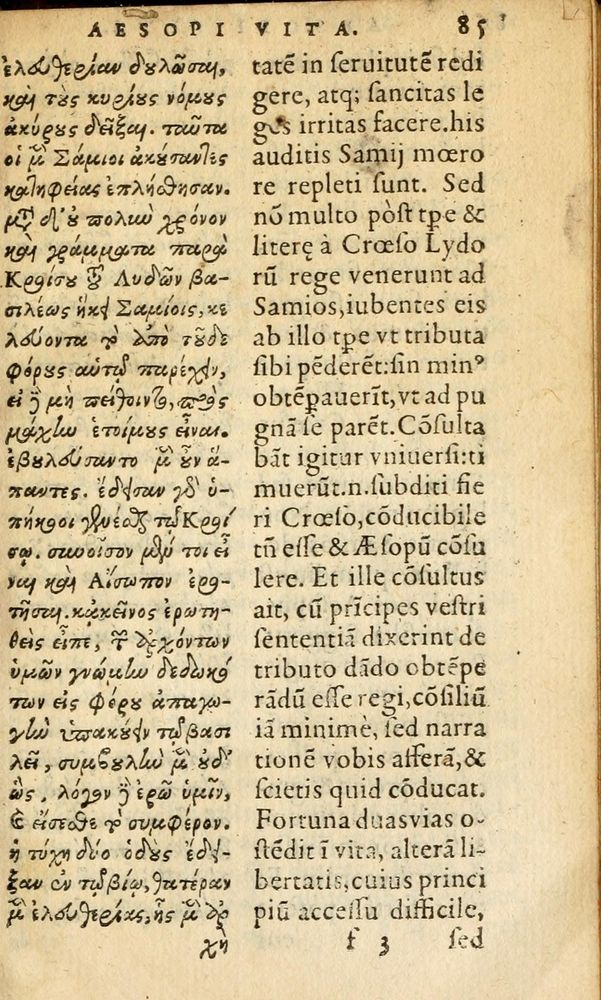 AESOPI VITA. 85
ἐλευθερίαν δουλῶσαι,
καὶ τοὺς κυρίους νόμους
ἀκύρους δεῖξαι. ταῦτα
οἱ μὲν Σάμιοι ἀκούσαντες
κατηφείας ἐπλήσθησαν.
μετ' οὐ πολὺν χρόνον
καὶ γράμματα παρὰ
Κροίσου τοῦ Λυδῶν βα-
σιλέως ἧκε Σαμίοις, κε
λεύοντα τὸ ἀπὸ τοῦδε
φόρους αὐτῷ παρέχειν,
εἰ δὲ μὴ πείθοιντο, πρὸς
μάχην ἑτοίμους εἶναι.
ἐβουλεύσαντο μὲν οὖν ἅ-
παντες. ἔδεισαν γὰρ ὑ-
πήκοοι γενέσθαι τῷ Κροί
σῳ. συνοῖσον μέν τοι εἶ
ναι καὶ Αἴσωπον ἐρω-
τῆσαι. κἀκεῖνος ἐρωτη-
θεὶς εἶπε, τῶν ἀρχόντων
ὑμῶν γνώμην δεδωκό
των εἰς φόρου ἀπαγω-
γὴν ὑπακούειν τῷ βασι
λεῖ, συμβουλὴν μὲν οὐδ'
ὥς, λόγον δὲ ἐρῶ ὑμῖν,
καὶ εἴσεσθε τὸ συμφέρον.
ἡ τύχη δύο ὁδοὺς ἔδει-
ξεν ἐν τῷ βίῳ, θατέραν
μὲν ἐλευθερίας, ἧς μὲν ἀρ
χὴ
tatē in seruitutē redi
gere, atq; sancitas le
ges irritas facere.his
auditis Samij mœro
re repleti sunt. Sed
nō multo pòst tpe &
literę à Crœso Lydo
rū rege venerunt ad
Samios,iubentes eis
ab illo tpe vt tributa
sibi pēderēt:sin minꝰ
obtēꝑauerīt,vt ad pu
gnā se parēt.Cōsulta
bāt igitur vniuersi:ti
muerūt.n.subditi fie
ri Crœso,cōducibile
tñ esse & Æsopū cōsu
lere. Et ille cōsultus
ait, cū prīcipes vestri
sententiā dixerint de
tributo dādo obtēpe
rādū esse regi,cōsiliū
iā minimè, sed narra
tionē vobis afferā,&
scietis quid cōducat.
Fortuna duas vias o-
stēdit ī vita, alterā li-
bertatis,cuius princi
piū accessu difficile,
f 3 sed